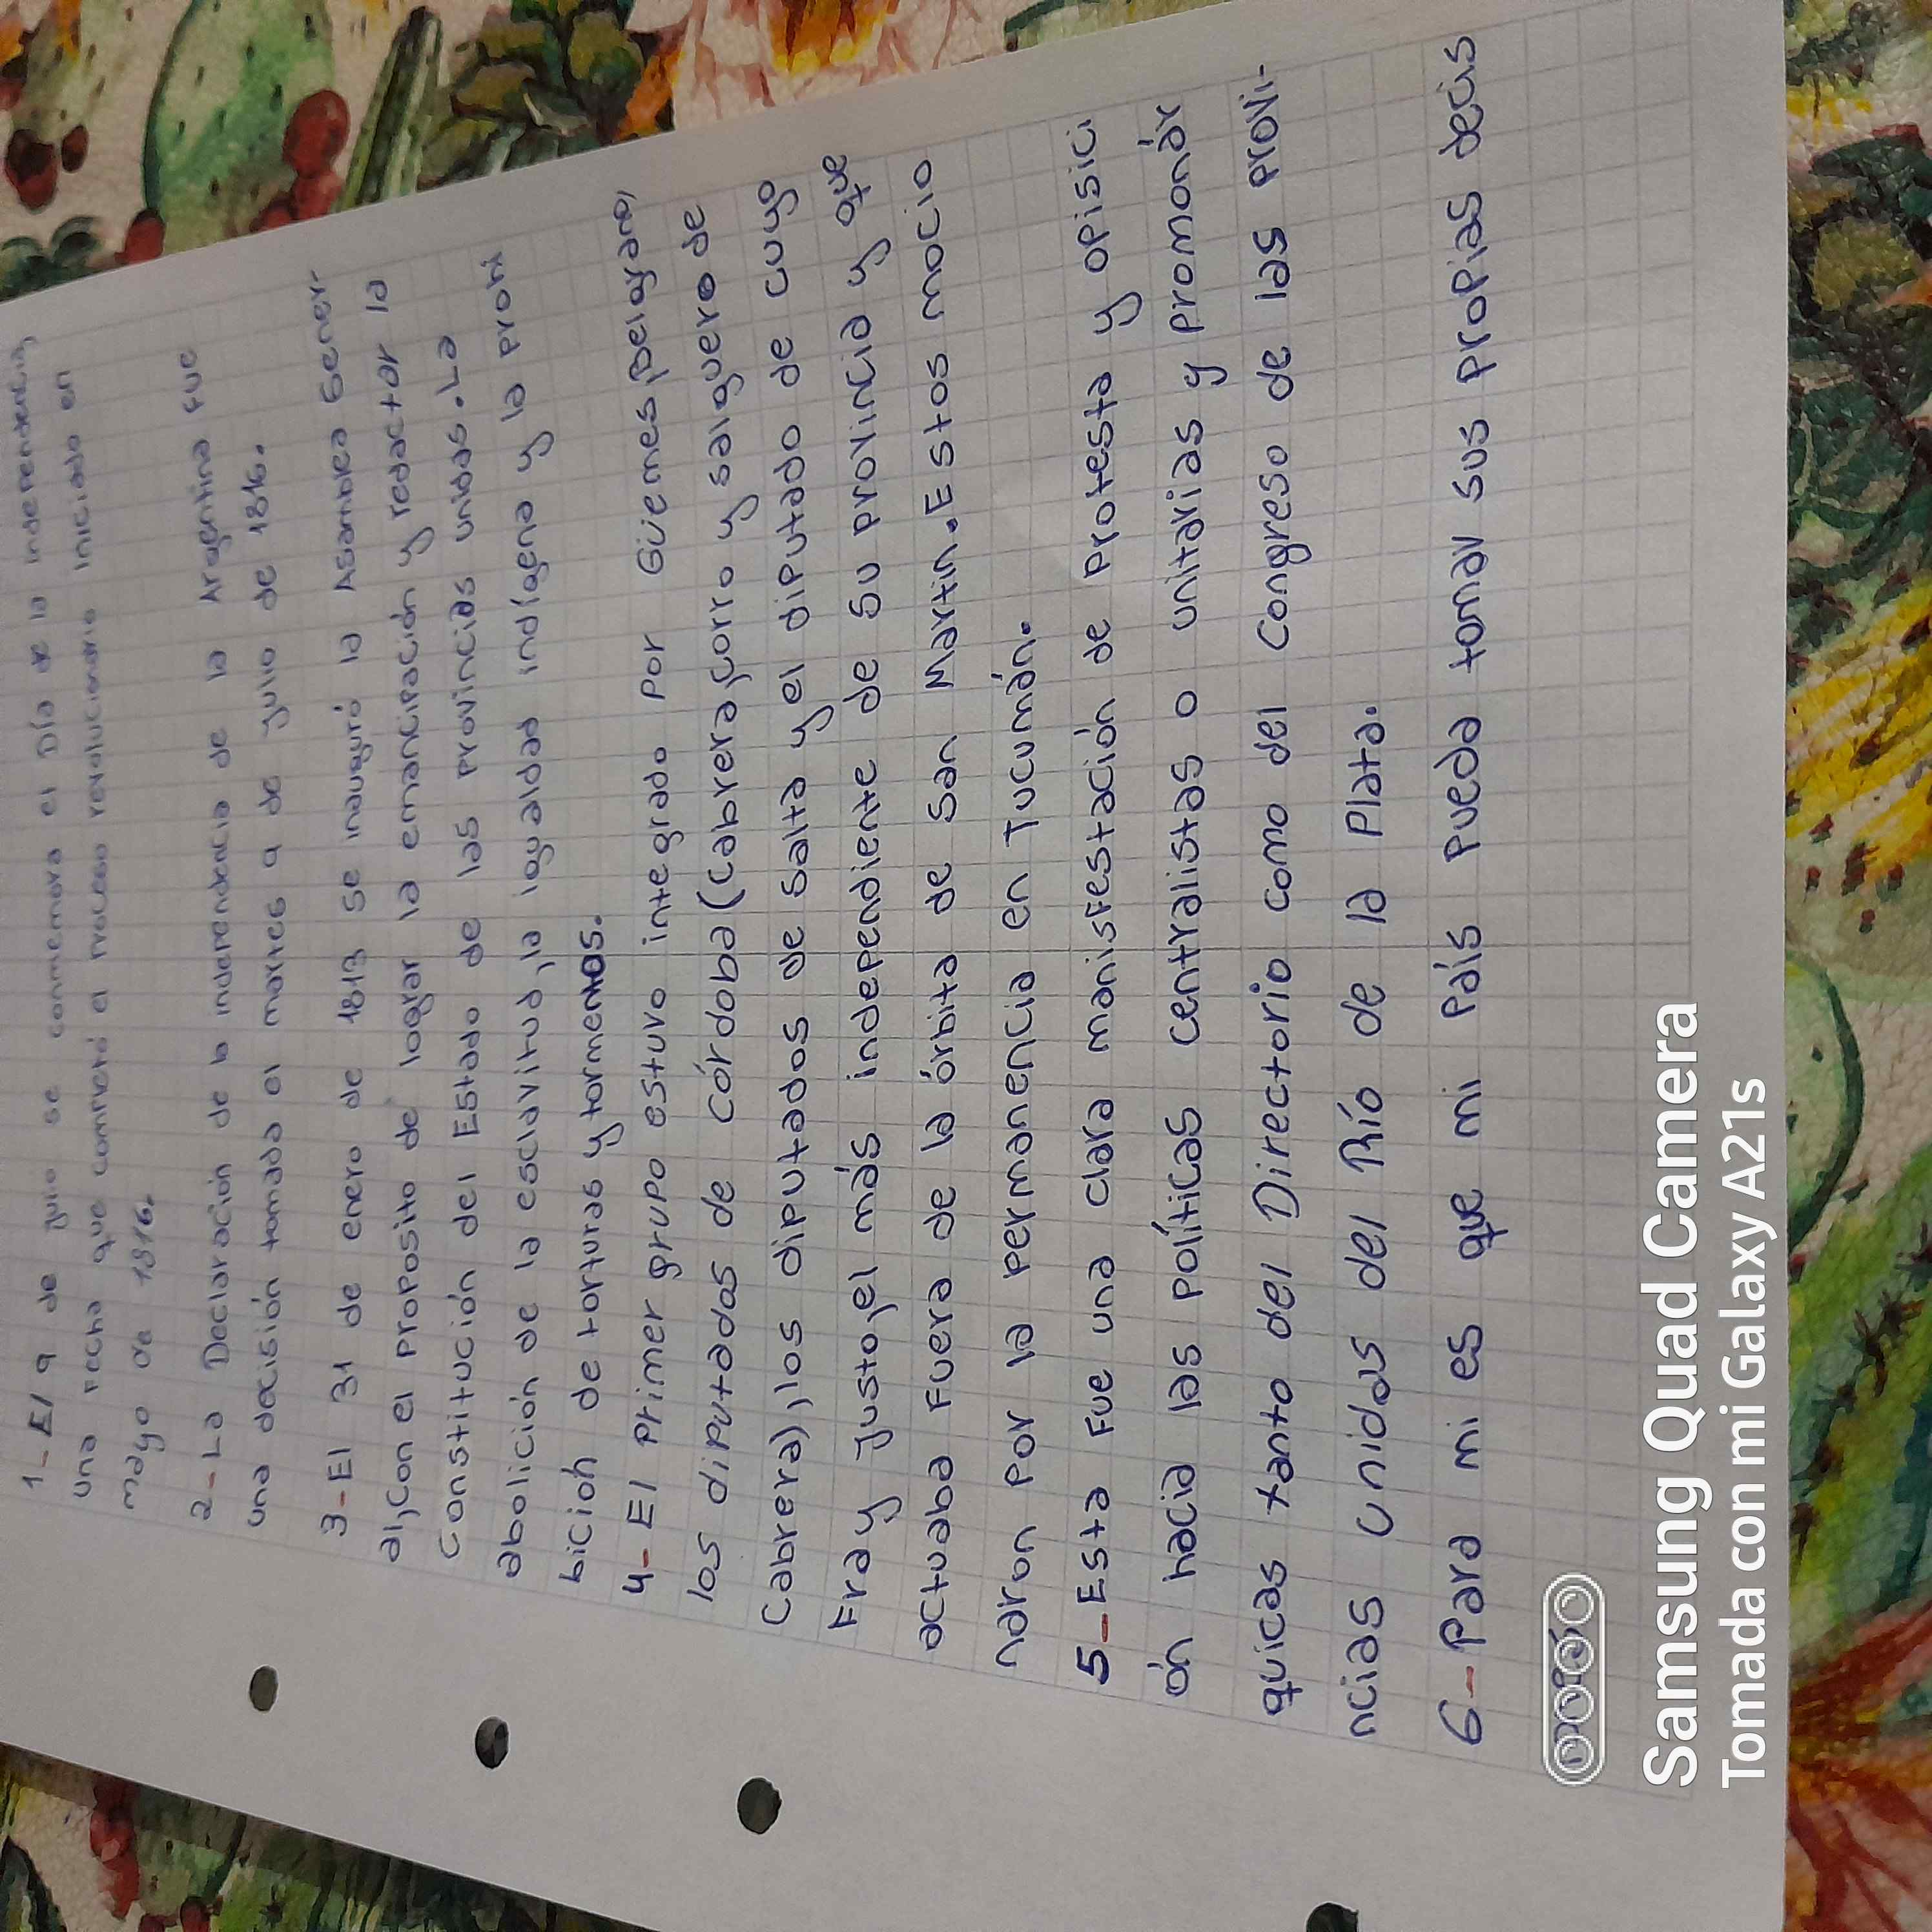 1- El 9 de julio se conmemora el Día de la independencia,
una fecha que completó el proceso revolucionario iniciado en
mayo de 1816.
2- La Declaración de la independencia de la Argentina fue
una decisión tomada el martes 9 de julio de 1816.
3- El 31 de enero de 1813 se inauguró la Asamblea Gener
al, con el proposito de lograr la emancipación y redactar la
Constitución del Estado de las provincias unidas. La
abolición de la esclavitud, la igualdad indígena y la prohi
bicion de torturas y tormentos.
4- El primer grupo estuvo integrado por Güemes, Belgrano,
los diputados de Córdoba (Cabrera, Corro y salguero de
Cabrera), los diputados de Salta y el diputado de cuyo
Fray Justo, el más independiente de su provincia y que
actuaba fuera de la órbita de San Martin. Estos mocio
naron por la permanencia en Tucumán.
5- Esta fue una clara manisfestación de protesta y opisici
ón hacia las políticas centralistas o unitarias y promonár
quicas tanto del Directorio como del Congreso de las provi-
ncias unidas del Río de la Plata.
6- Para mi es que mi país pueda tomar sus propias decis
Samsung Quad Camera
Tomada con mi Galaxy A21s